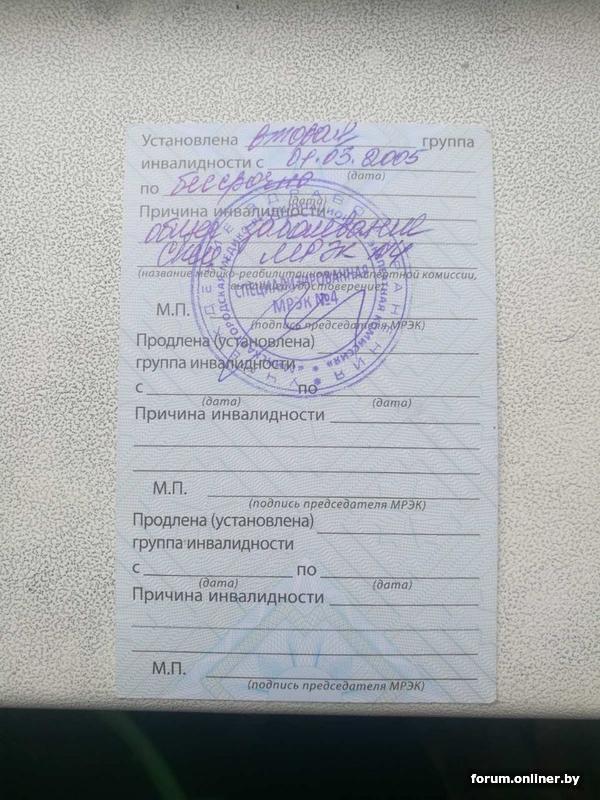 Установлена вторая группа
инвалидности с 01.03.2005
(дата)
по бессрочно
(дата)
Причина инвалидности
общее заболевание
МРЭК №4
(название медико-реабилитационной экспертной комиссии,
выдавшей удостоверение)
СПЕЦИАЛИЗИРОВАННАЯ
МРЭК №4
М.П.
(подпись председателя МРЭК)
Продлена (установлена)
группа инвалидности
с по
(дата) (дата)
Причина инвалидности
М.П.
(подпись председателя МРЭК)
Продлена (установлена)
группа инвалидности
с по
(дата) (дата)
Причина инвалидности
М.П.
(подпись председателя МРЭК)
forum.onliner.by